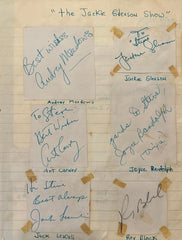 "the Jackie Gleason Show"
Best wishes
Audrey Meadows
Audrey Meadows
"To Steve"
Jackie Gleason
Jackie Gleason
To Steve
Best Wishes
Art Carney
Art Carney
Joyce Randolph
"Trixie"
Joyce Randolph
To Steve
Best Always
Jack
Jack
Ray Bloch
Ray Bloch